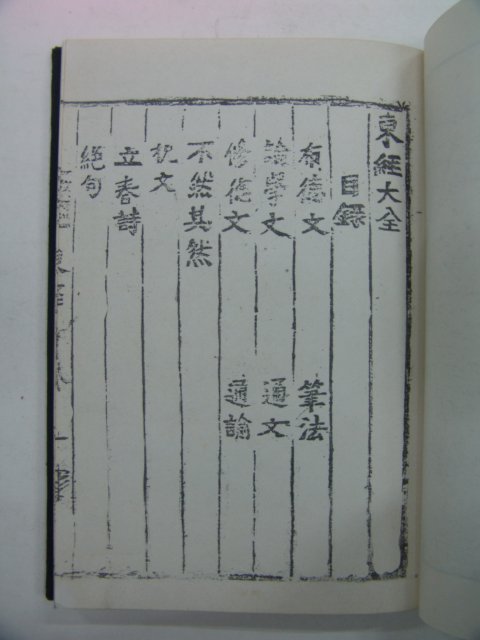 東經大全
目録
布德文 筆法
論學文 通文
修德文 通諭
不然其然
祝文
立春詩
絕句